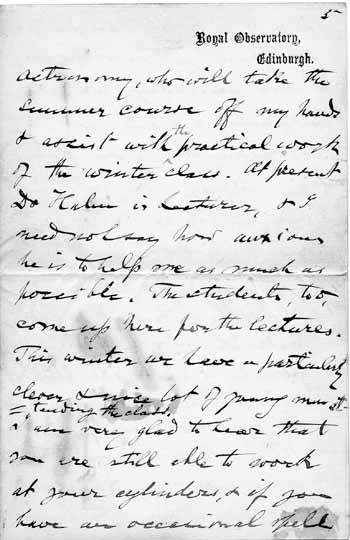 5
Royal Observatory,
Edinburgh.
astronomy, who will take the
summer course off my hands
& assist with the practical work
of the winter class. At present
Dr Halm is Lecturer, & I
need not say how anxious
he is to help me as much as
possible. The students, too,
come up here for the lectures.
This winter we have a particularly
clever & nice lot of young men at-
=tending the class.
I am very glad to hear that
you are still able to work
at your cylinders, & if you
have an occasional spell